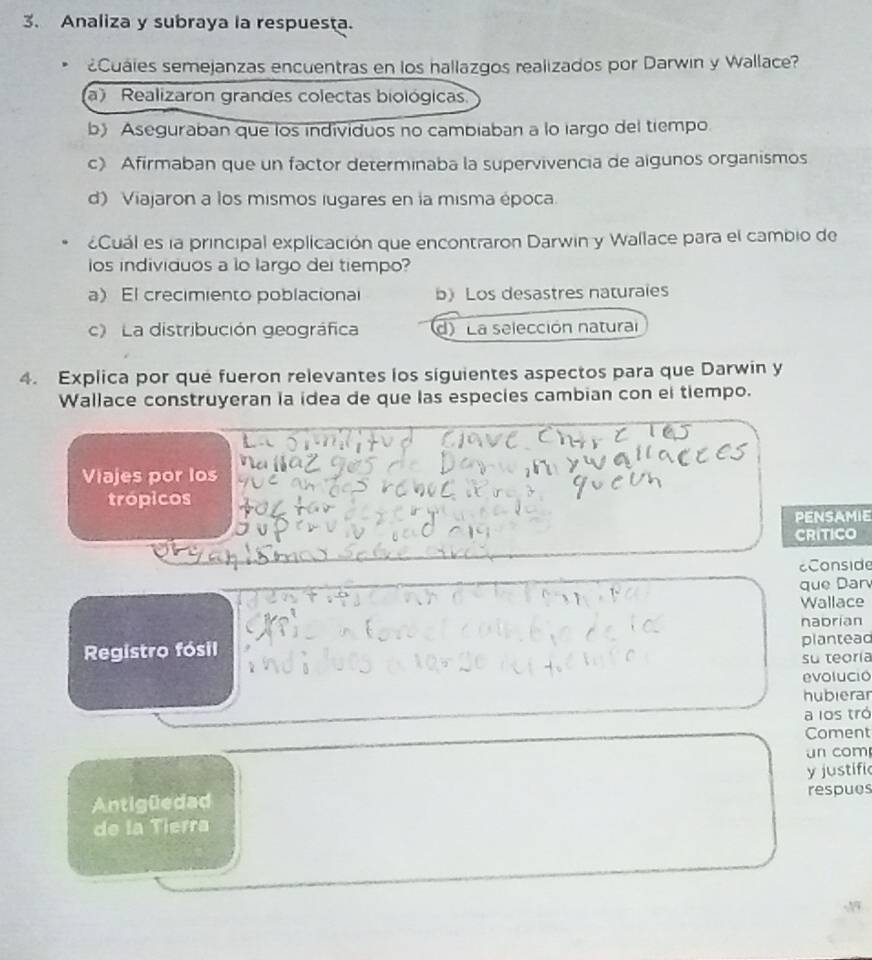 3. Analiza y subraya la respuesta.
• ¿Cuáles semejanzas encuentras en los hallazgos realizados por Darwin y Wallace?
a) Realizaron grandes colectas biológicas.
b) Aseguraban que los individuos no cambiaban a lo largo del tiempo.
c) Afirmaban que un factor determinaba la supervivencia de algunos organismos
d) Viajaron a los mismos lugares en la misma época.
• ¿Cuál es la principal explicación que encontraron Darwin y Wallace para el cambio de
los individuos a lo largo del tiempo?
a) El crecimiento poblacional b) Los desastres naturales
c) La distribución geográfica d) La selección natural
4. Explica por qué fueron relevantes los siguientes aspectos para que Darwin y
Wallace construyeran la idea de que las especies cambian con el tiempo.
La similitud clave entre los
hallaz gos de Darwin y wallacees
Viajes por los
que am que un
trópicos
factor
PENSAMIE
CRÍTICO
organismos
¿Conside
que Darw
Wallace
habrían
plantead
Registro fósil
su teoría
evolució
hubieran
a los tró
Coment
un comp
y justific
respues
Antigüedad
de la Tierra